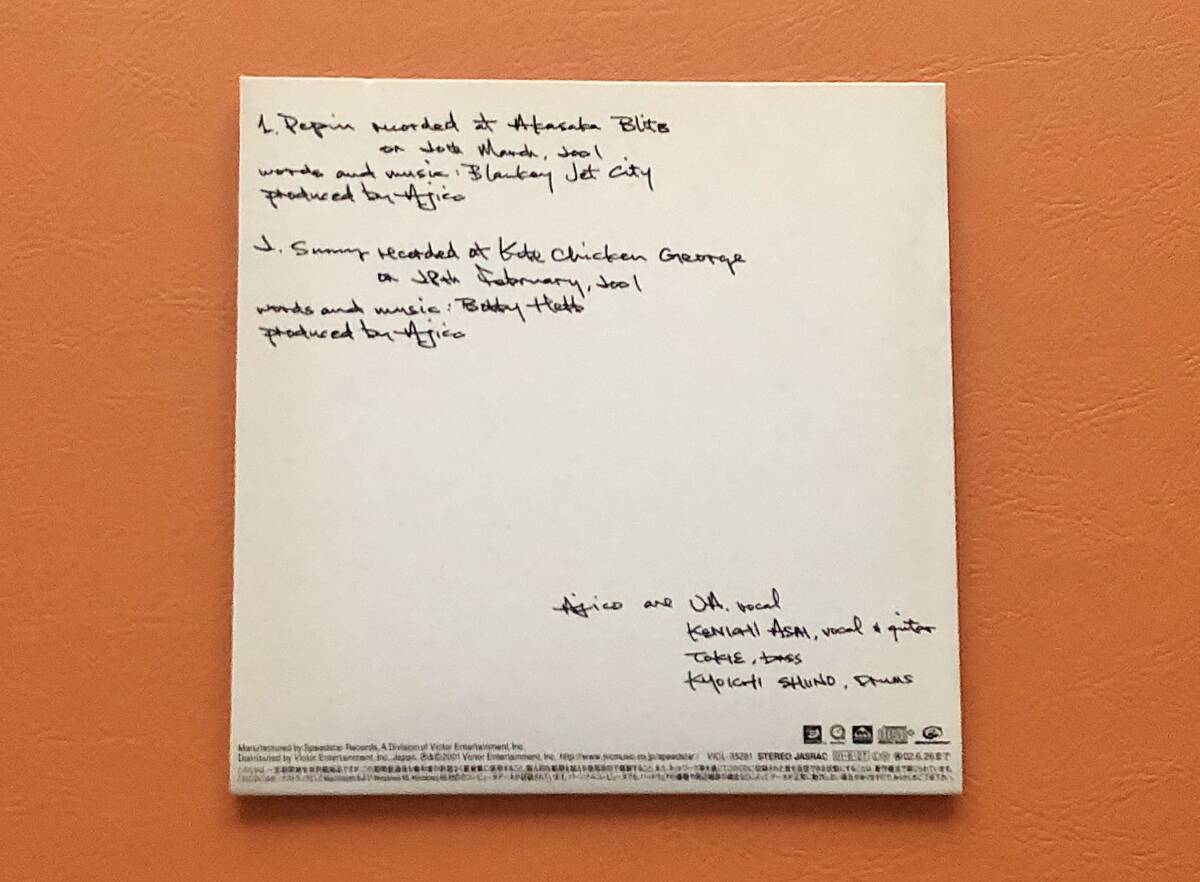 1. Pepin recorded at Akasaka Blitz
on 20th March, 2001
words and music: Blankey Jet City
produced by Ajico
2. Sunny recorded at Kobe Chicken George
on 28th February, 2001
words and music: Bobby Hebb
produced by Ajico
Ajico are UA, vocal
KENICHI ASAI, vocal & guitar
TOKIE, bass
KYOICHI SHIINO, Drums
Manufactured by Speedstar Records, A Division of Victor Entertainment, Inc.
Distributed by Victor Entertainment, Inc., Japan. ℗&©2001 Victor Entertainment, Inc. http://www.jvcmusic.co.jp/speedstar/ VICL-35281 STEREO JASRAC 01·6·27 Ⓛ Ⓡ 02.6.26まで